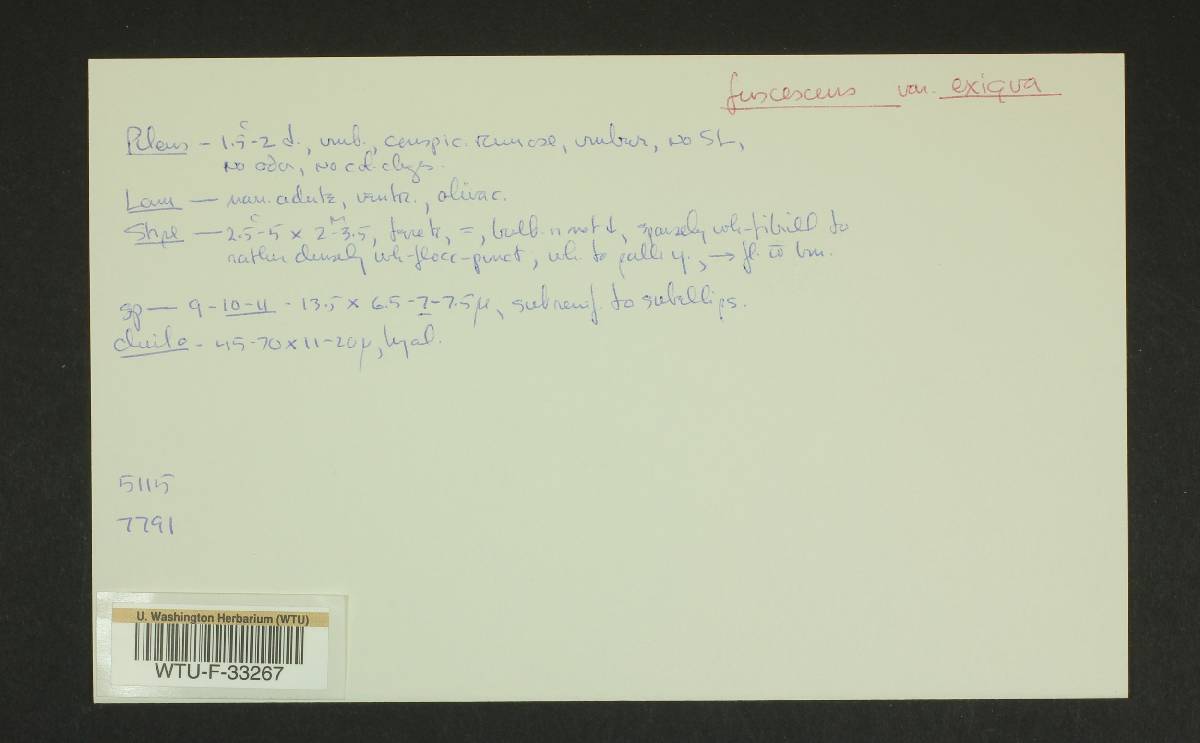 fuscescens var. exigua
Pileus – 1.5-2 d., umb., conspic. rimose, umber, no SL,
c
no odor, no col. chges.
Lam — narr. adnate, ventr., olivac.
Stipe — 2.5-5 x 2-3.5, terete, =, bulb. n not ↓, sparsely wh-fibrill to
c m
rather densely wh-flocc-punct, wh. to pallid y., → fl. w brn.
sp — 9-10-11-13.5 x 6.5-7-7.5µ, subrenif. to subellips.
cheilo - 45-70 x 11-20µ, hyal.
5115
7791
U. Washington Herbarium (WTU)
WTU-F-33267